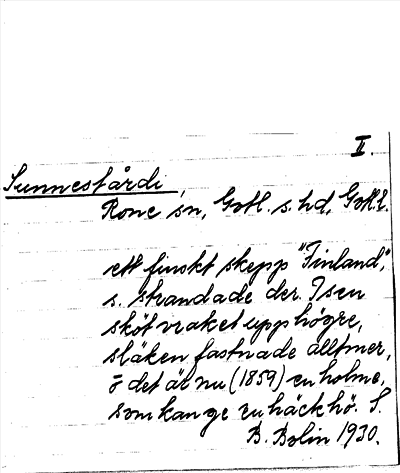 II.
Sunnesårdi,
Rone sn, Gotl. s. hd, Gotl.l.
ett finskt skepp "Finland",
s. strandade der. Isen
sköt vraket upp högre,
släken fastnade alltmer,
o det är nu (1859) en holme,
som kan ge en häck hö. S.
B. Bolin 1930.